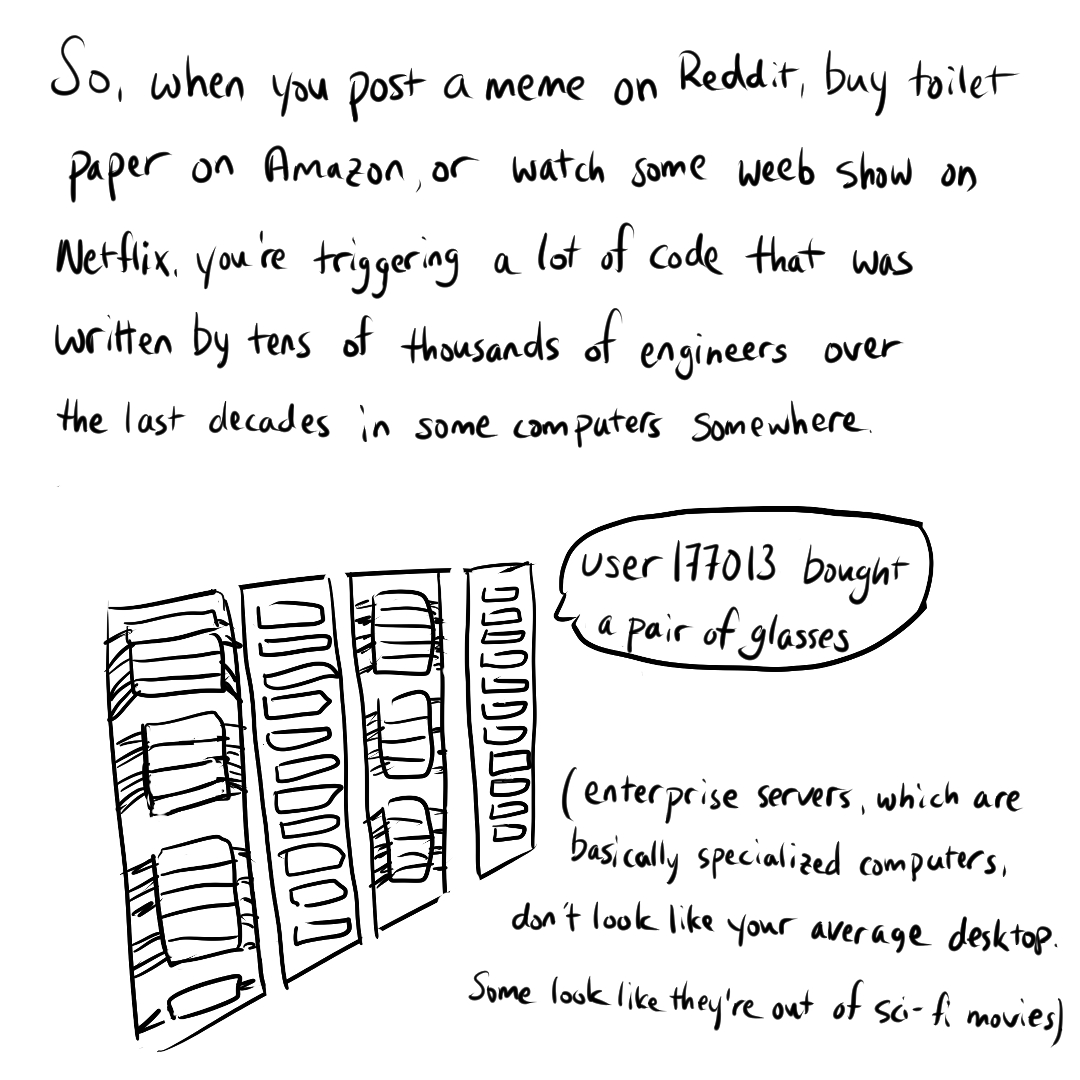 So, when you post a meme on Reddit, buy toilet
paper on Amazon, or watch some weeb show on
Netflix, you're triggering a lot of code that was
written by tens of thousands of engineers over
the last decades in some computers somewhere.
user 177013 bought
a pair of glasses
(enterprise servers, which are
basically specialized computers,
don't look like your average desktop.
Some look like they're out of sci-fi movies)